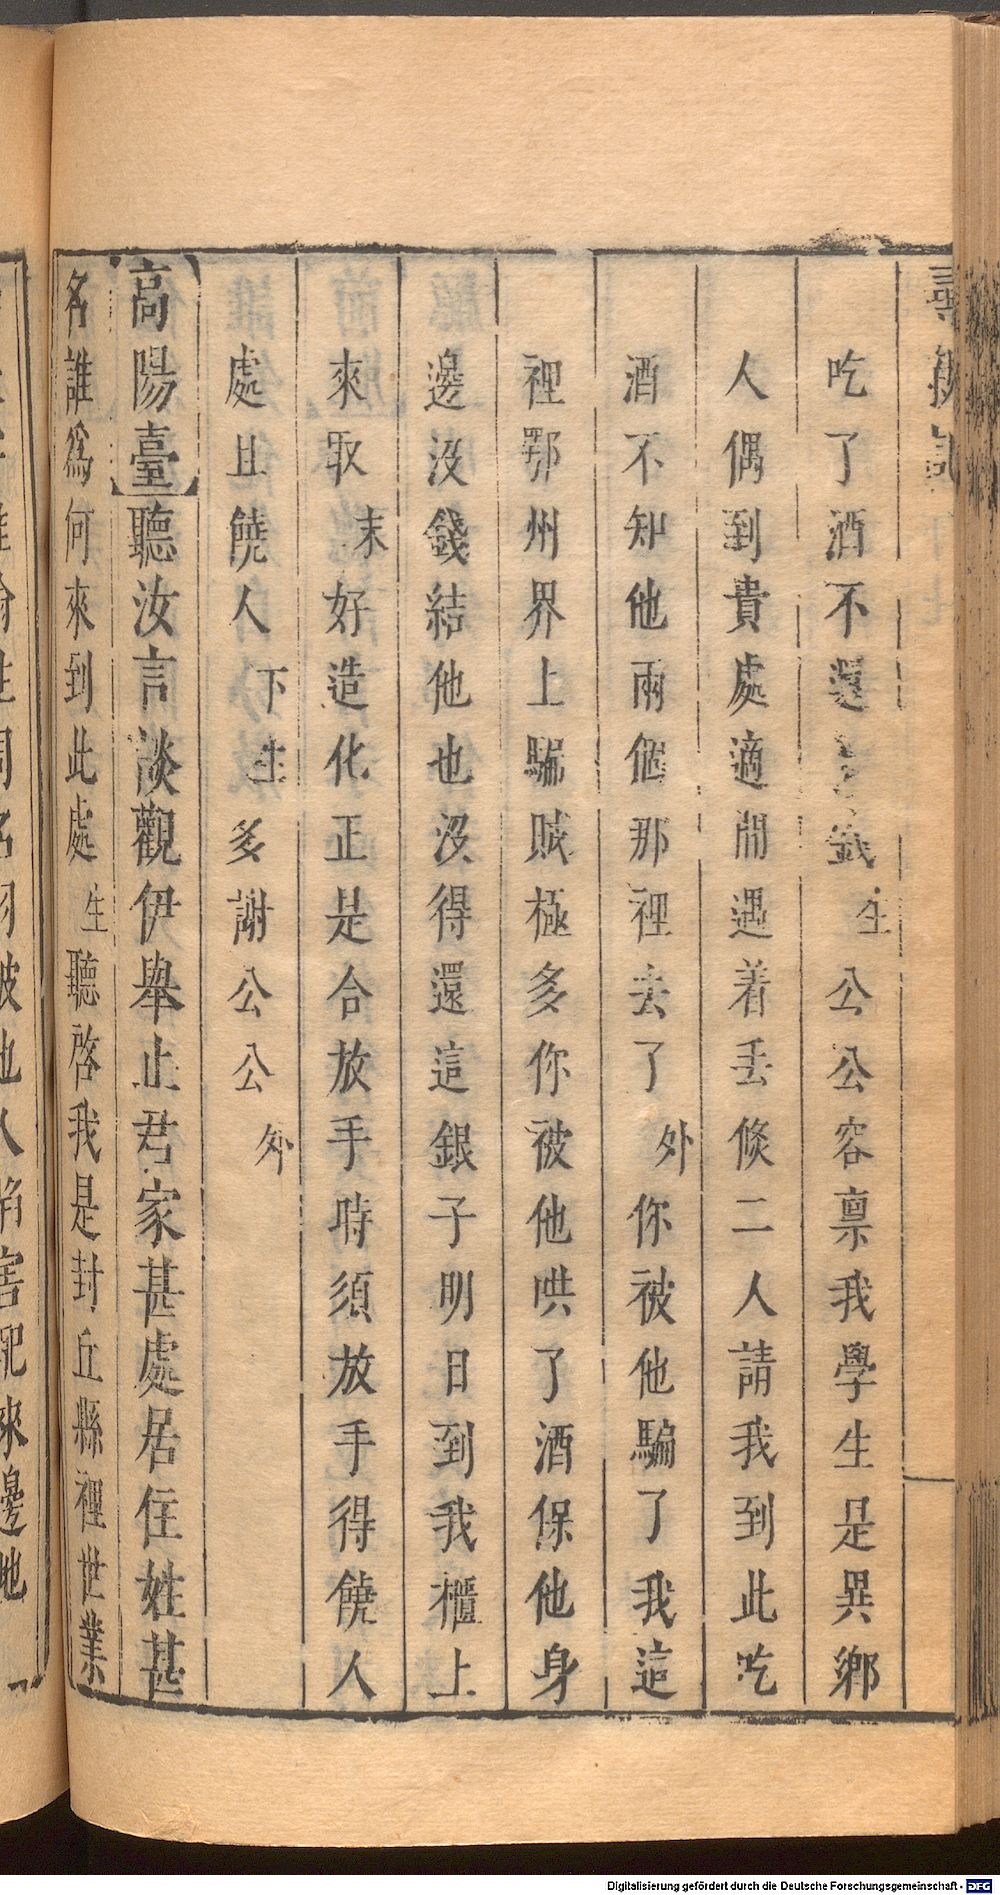 尋親記
吃了酒不還錢生公公容禀我學生是異鄉
人偶到貴處適間遇着丟倐二人請我到此吃
酒不知他兩個那裡去了外你被他騙了我這
裡鄂州界上騙賊極多你被他哄了酒保他身
邊没錢結他也没得還這銀子明日到我櫃上
來取末好造化正是合放手時須放手得饒人
處且饒人下生多謝公公外
高陽臺聽汝言談觀伊舉止君家甚處居住姓甚
名誰爲何來到此處生聽啓我是封丘縣裡世業
Digitalisierung gefördert durch die Deutsche Forschungsgemeinschaft - DFG